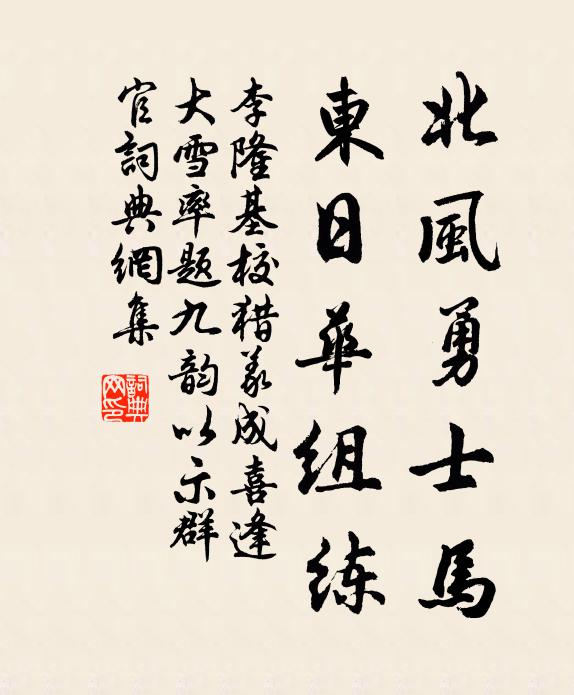 北風勇士馬
東日華組練
李隆基校猎义成喜逢
大雪率题九韵以示群
官詞典網集
詞典
网印